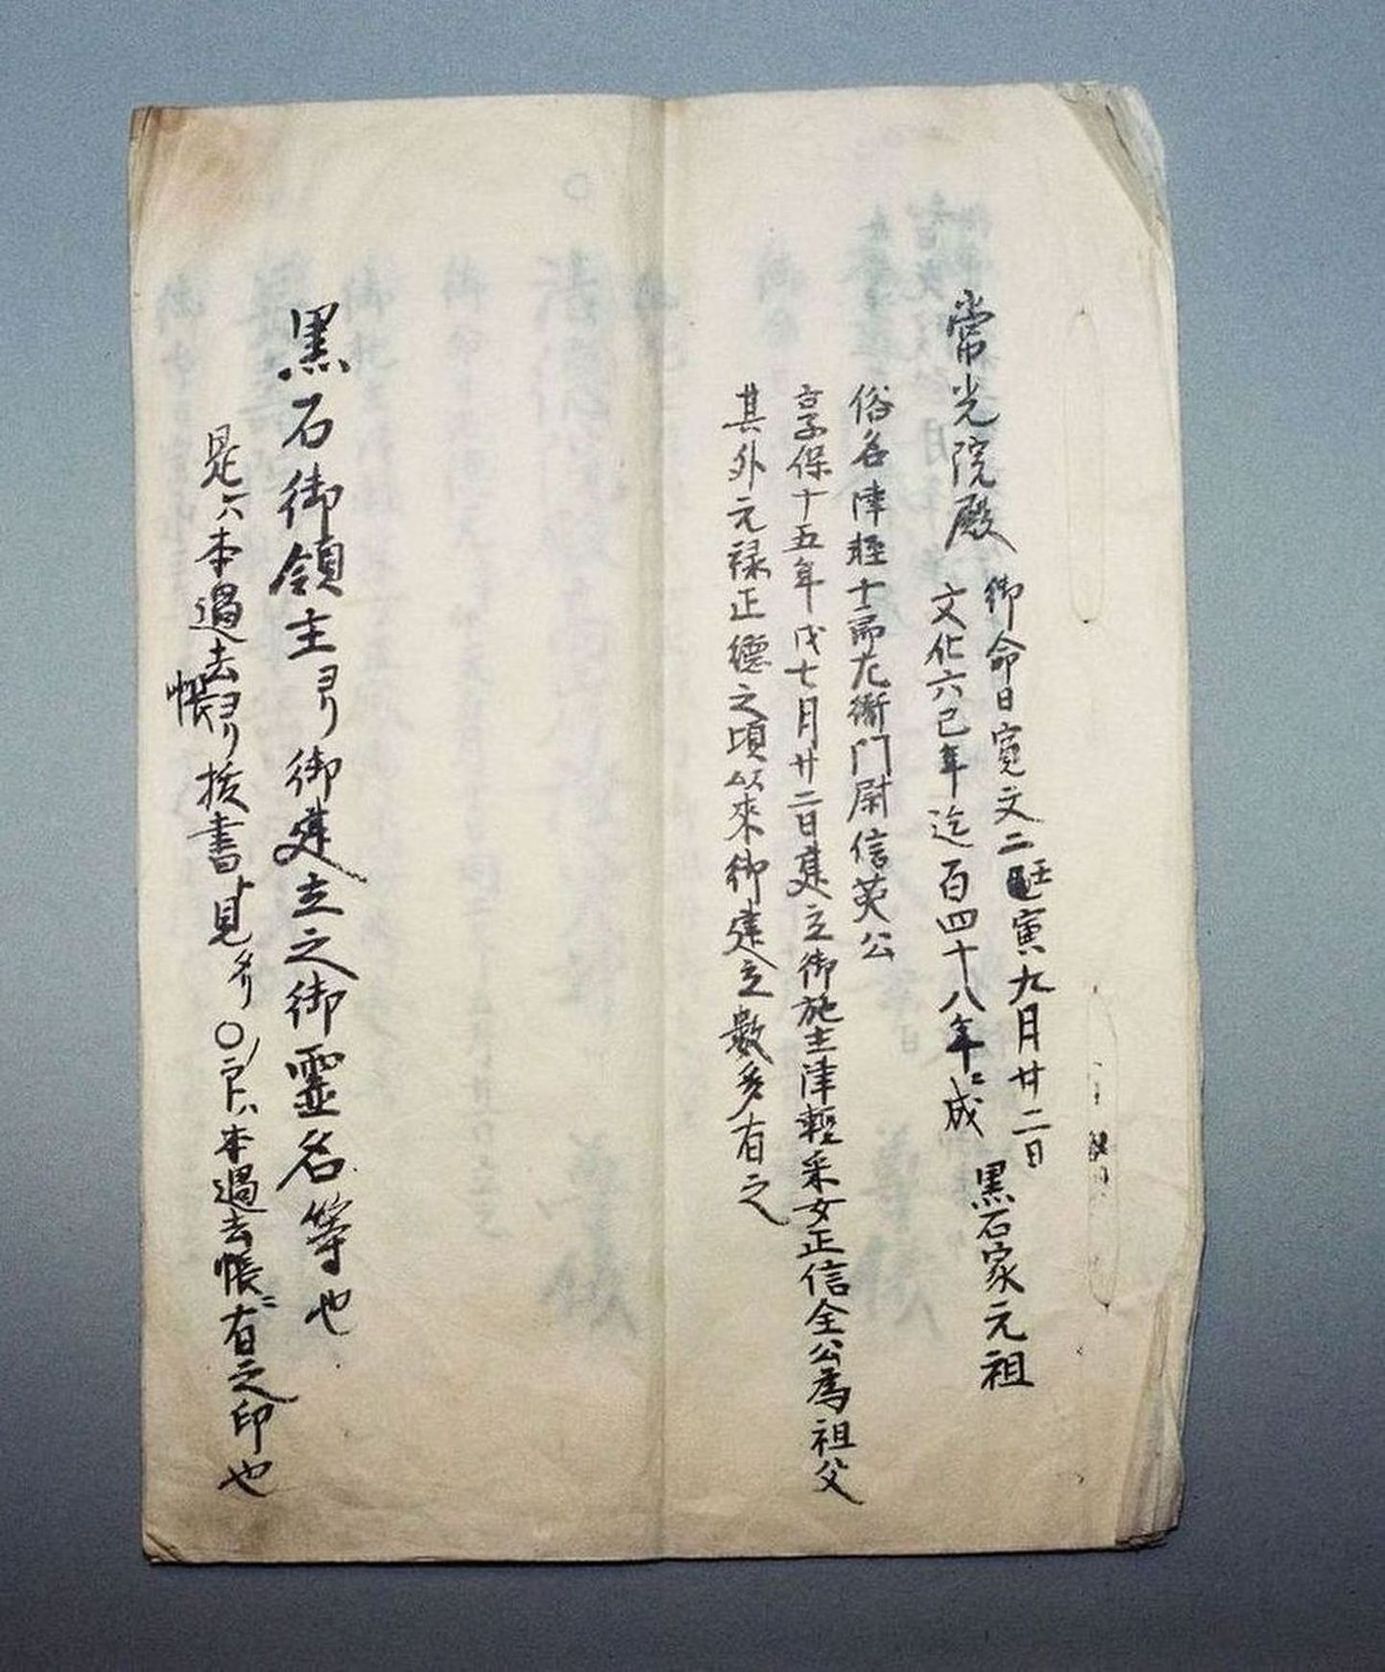 常光院殿
御命日寛文二壬寅九月廿二日
文化六巳年迄百四十八年ニ成
黒石家元祖
俗名津軽十郎左衞門尉信英公
享保十五年戌七月廿二日建立御施主津輕采女正信全公為祖父
其外元禄正德之頃以來御建立數多有之
黒石御領主ヨリ御建立之御靈名等也
是ハ本過去帳ヨリ抜書ト見ヘタリ
〇印ハ本過去帳ニ有之印也